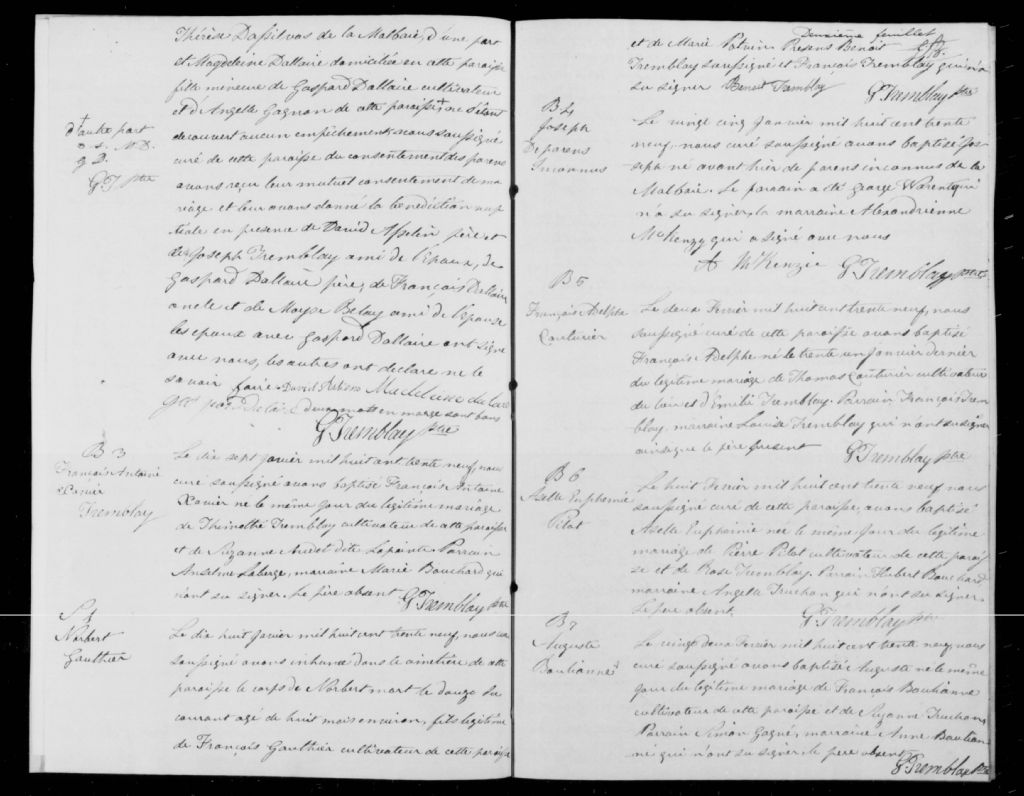 Thérèse Dassilvas de la Malbaie, d'une part
et Magdeleine Dallaire domiciliée en cette paroisse
fille mineure de Gaspard Dallaire cultivateur
et d'Angelle Gagnon de cette paroisse + ne s'étant
découvert aucun empêchement nous soussigné
curé de cette paroisse du consentement des parens
avons reçu leur mutuel consentement de ma
riage et leur avons donné la bénédiction nup
tiale en présence de David Asselin père et
de Joseph Tremblay ami de l'Epoux, de
Gaspard Dallaire père, de François Dallaire
oncle et de Moyse Belay ami de l'épouse
les epoux avec Gaspard Dallaire ont signé
avec nous, les autres ont déclaré ne le
savoir faire. David Madeleine
deux mots en marge sont bons
G Tremblay ptre
+ d'autre part
M. D.
g D.
G T ptre
B 3
François Antoine
Xavier
Tremblay
Le dix sept janvier mil huit cent trente neuf, nous
curé soussigné avons baptisé François Antoine
Xavier né le même jour du légitime mariage
de Thimothé Tremblay cultivateur de cette paroisse
et de Suzanne Audet dite Lapointe. Parrain
Anselme Laberge, marraine Marie Bouchard qui
n'ont su signer. le père absent. G Tremblay ptre
S 1
Norbert
Gauthier
Le dix huit janvier mil huit cent trente neuf, nous curé
soussigné avons inhumé dans le cimetière de cette
paroisse le corps de Norbert mort le douze du
courant agé de huit mois environ, fils légitime
de François Gauthier cultivateur de cette paroisse
Deuxième feuillet
et de Marie Potvin Présens Benoit
Tremblay soussigné et François Tremblay qui n'a
su signer Benoit Tremblay
G Tremblay ptre
B 4
Joseph
De parens
Inconnus
Le vingt cinq janvier mil huit cent trente
neuf, nous curé soussigné avons baptisé Jos
seph né avant hier de parens inconnus de la
Malbaie. Le parrain a été George Warent qui
n'a su signer, la marraine Alexandrienne
McKenzy qui a signé avec nous
A McKenzie G Tremblay ptre
B 5
François Adelphe
Couturier
Le deux Fevrier mil huit cent trente neuf, nous
soussigné curé de cette paroisse avons baptisé
François Adelphe né le trente un janvier dernier
du legitime mariage de Thomas Couturier cultivateur
du lieu et d'Emilie Tremblay. Parrain François Trem
blay, marraine Louise Tremblay qui n'ont su signer
ainsi que le père présent
G Tremblay ptre
B 6
Adelle Euphemie
Pilot
Le huit Fevrier mil huit cent trente neuf nous
soussigné curé de cette paroisse, avons baptisé
Adelle Euphémie née le même jour du légitime
mariage de Pierre Pilot cultivateur de cette parois
se et de Rose Tremblay. Parrain Hubert Bouchard
marraine Angelle Truchon qui n'ont su signer.
Le père absent. G Tremblay ptre
B 7
Auguste
Boulianne
Le vingt deux Fevrier mil huit cent trente neuf, nous
curé soussigné avons baptisé Auguste né le même
jour du légitime mariage de François Boulianne
cultivateur de cette paroisse et de Suzanne Truchon,
Parrain Simon Gagné, marraine Anne Boulian
ne qui n'ont su signer le père absent
G Tremblay ptre